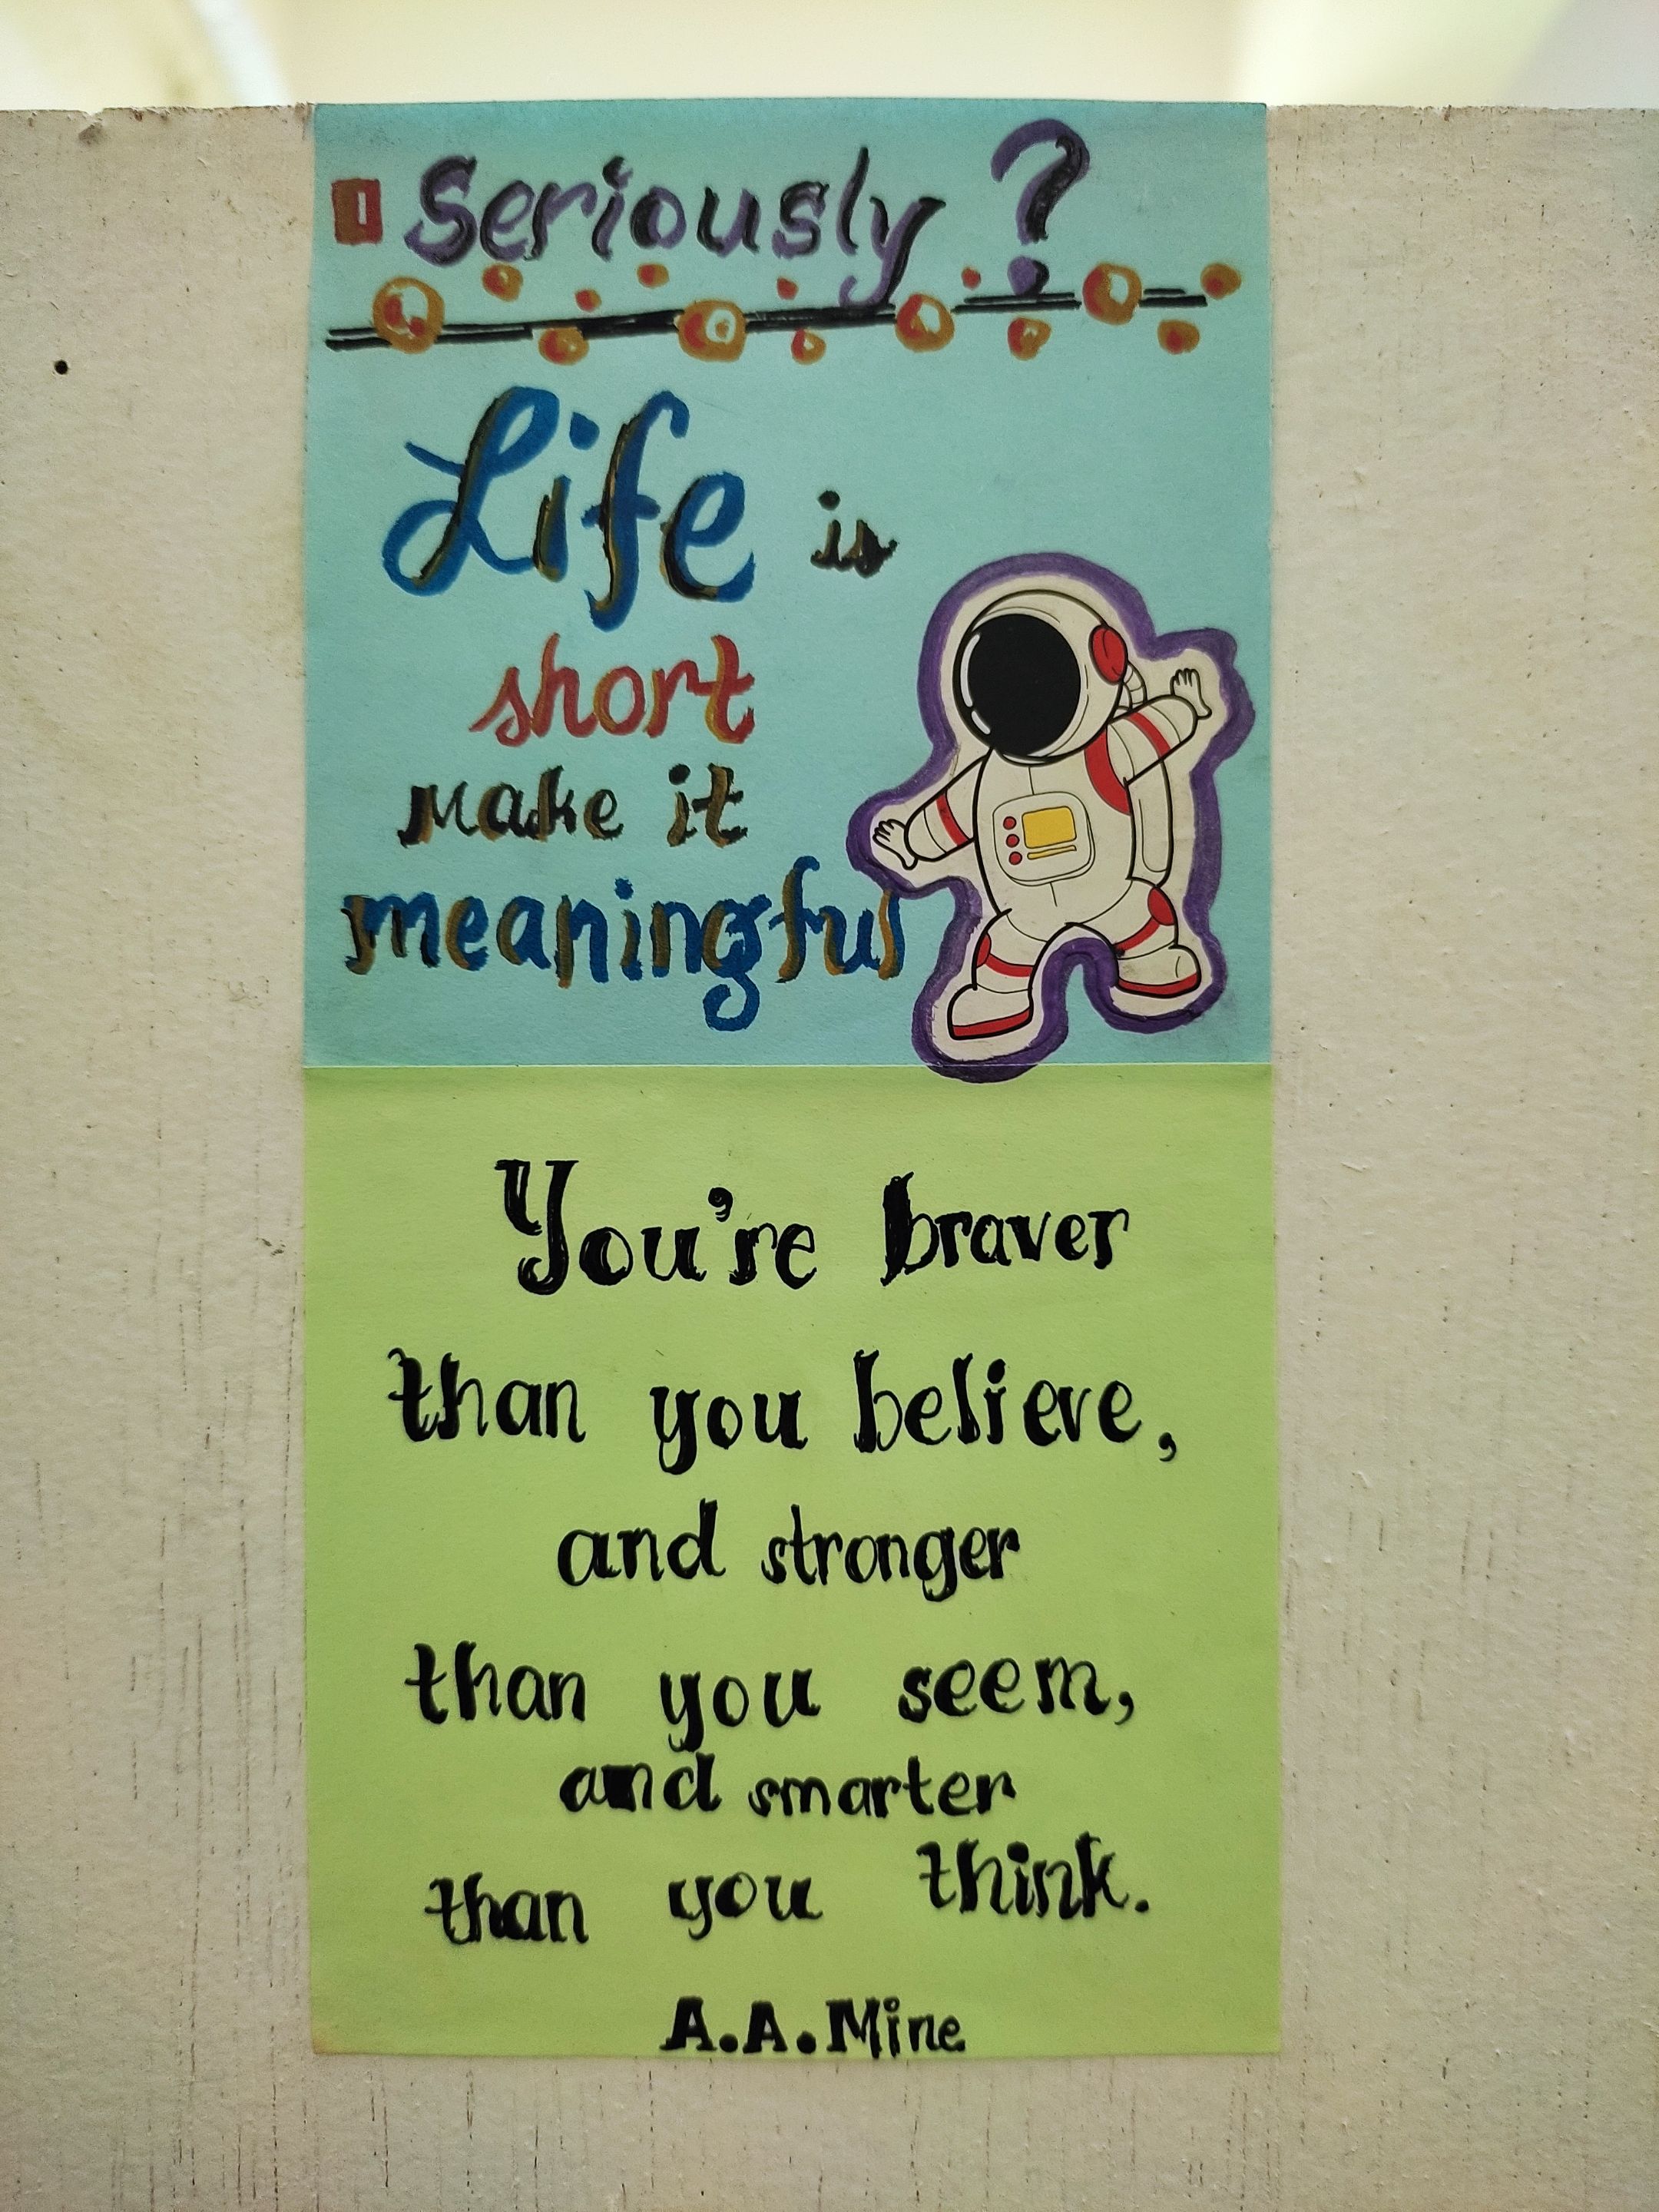 1 Seriously ?
Life is
short
Make it
meaningful
You're braver
than you believe,
and stronger
than you seem,
and smarter
than you think.
A.A.Mine